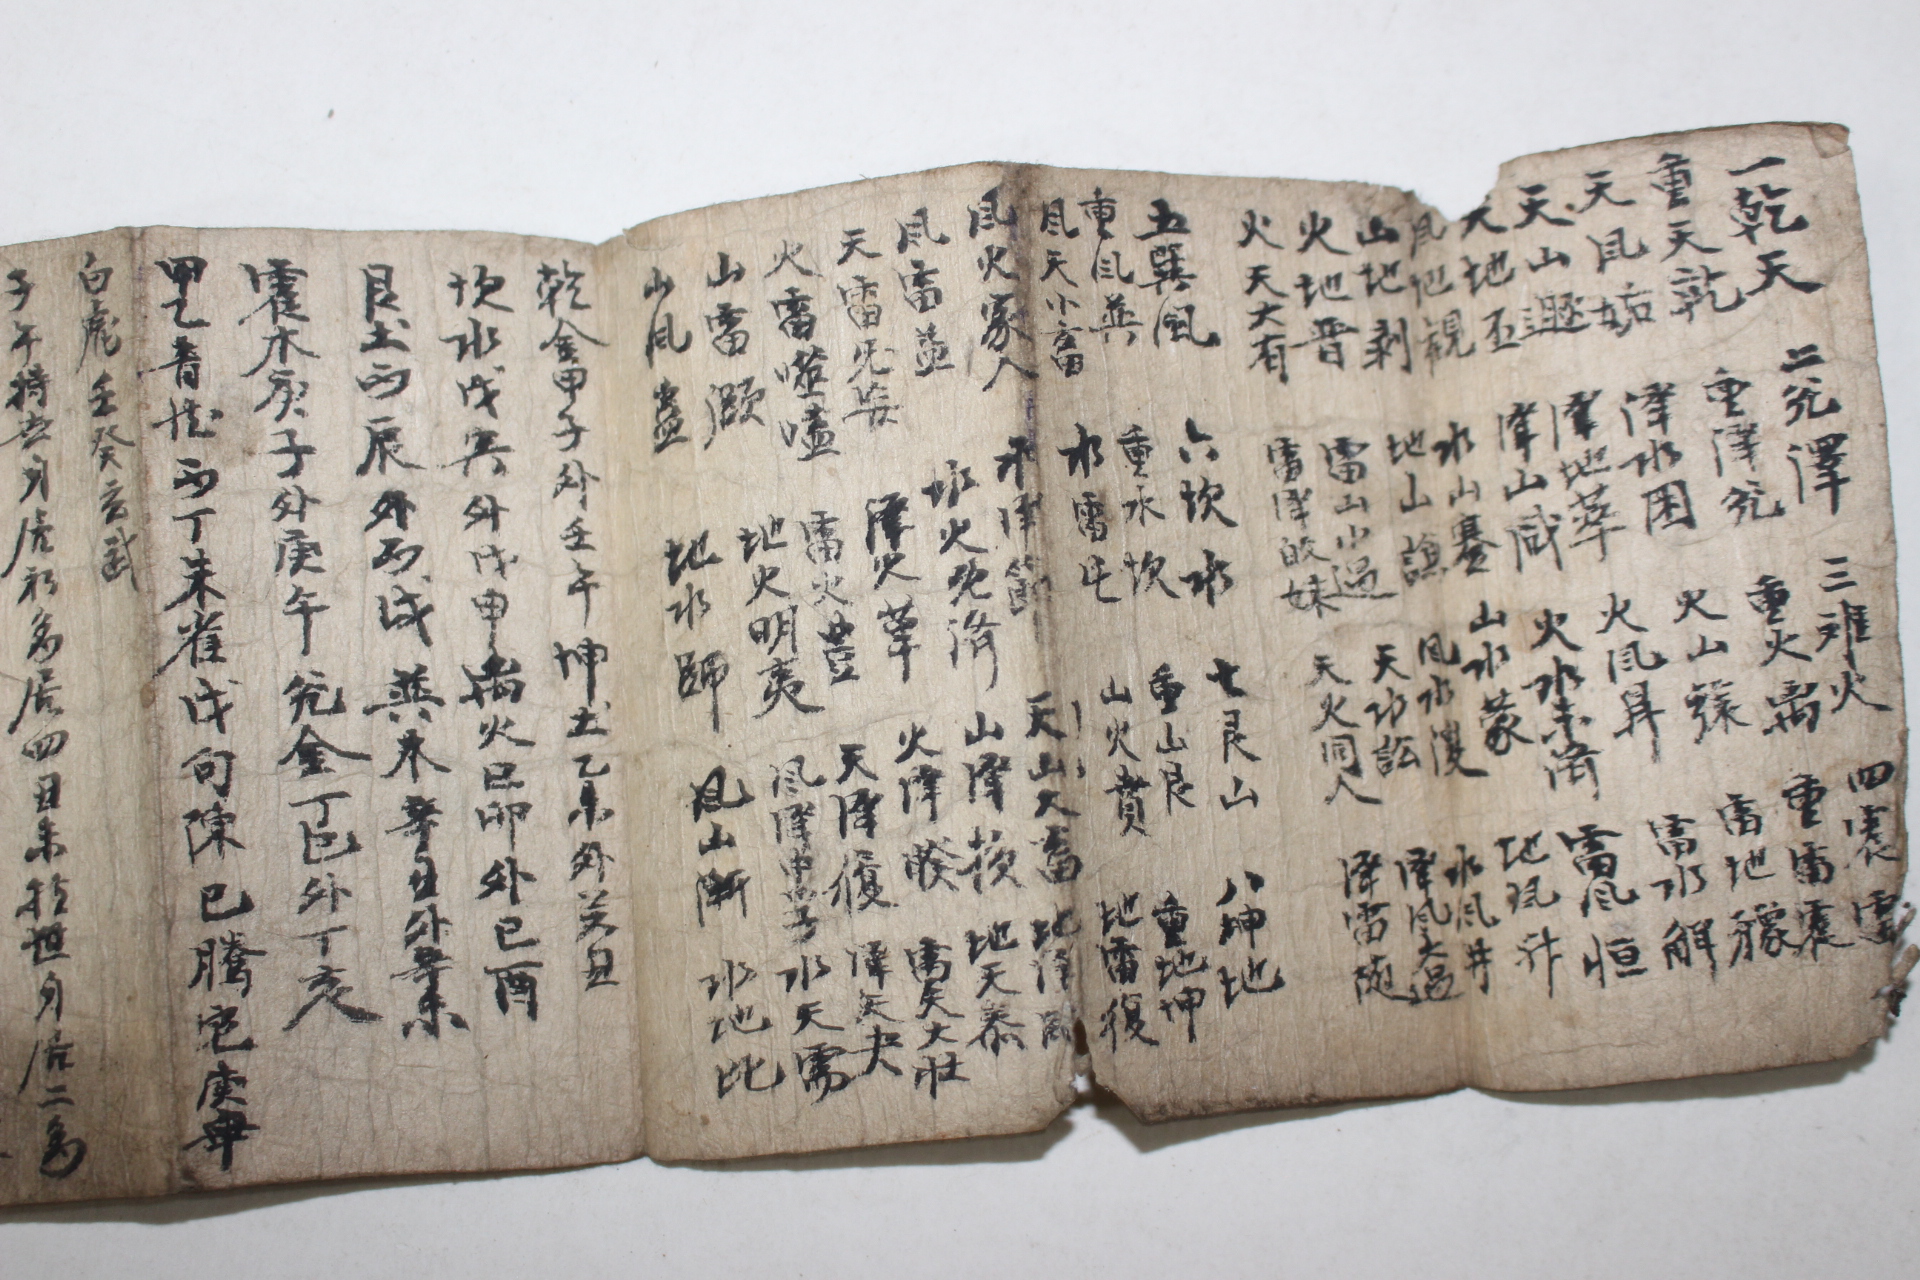 一乾天 二兌澤 三難火 四震雷
重天乾 重澤兌 重火离 重雷震
天風姤 澤水困 火山旅 雷地豫
天山遯 澤地萃 火風鼎 雷水解
天地丕 澤山咸 火水未濟 雷風恒
風地観 水山蹇 山水蒙 地風升
山地剥 地山謙 風水渙 水風井
火地晋 雷山小過 天水訟 澤風大過
火天大有 雷澤歸妹 天火同人 澤雷随
五巽風 六坎水 七艮山 八坤地
重風巽 重水坎 重山艮 重地坤
風天小畜 水雷屯 山火賁 地雷復
風火家人 水澤節 天山大畜 地澤
風雷益 水火旣済 山澤損 地天泰
天雷旡妄 澤火革 火澤睽 雷天大壮
火雷噬嗑 雷火豊 天澤履 澤天夬
山雷頥 地火明夷 風澤中孚 水天需
山風蠱 地水師 風山漸 水地比
乾金甲子外壬午 坤土乙未外癸丑
坎水戊寅外戊申 离火己卯外己酉
艮土丙辰外丙戌 巽木辛丑外辛未
震木庚子外庚午 兌金丁巳外丁亥
甲乙青龍丙丁朱雀戊句陳己騰蛇庚辛
白虎壬癸玄武
子午持世身居初 居四丑未持世身居二